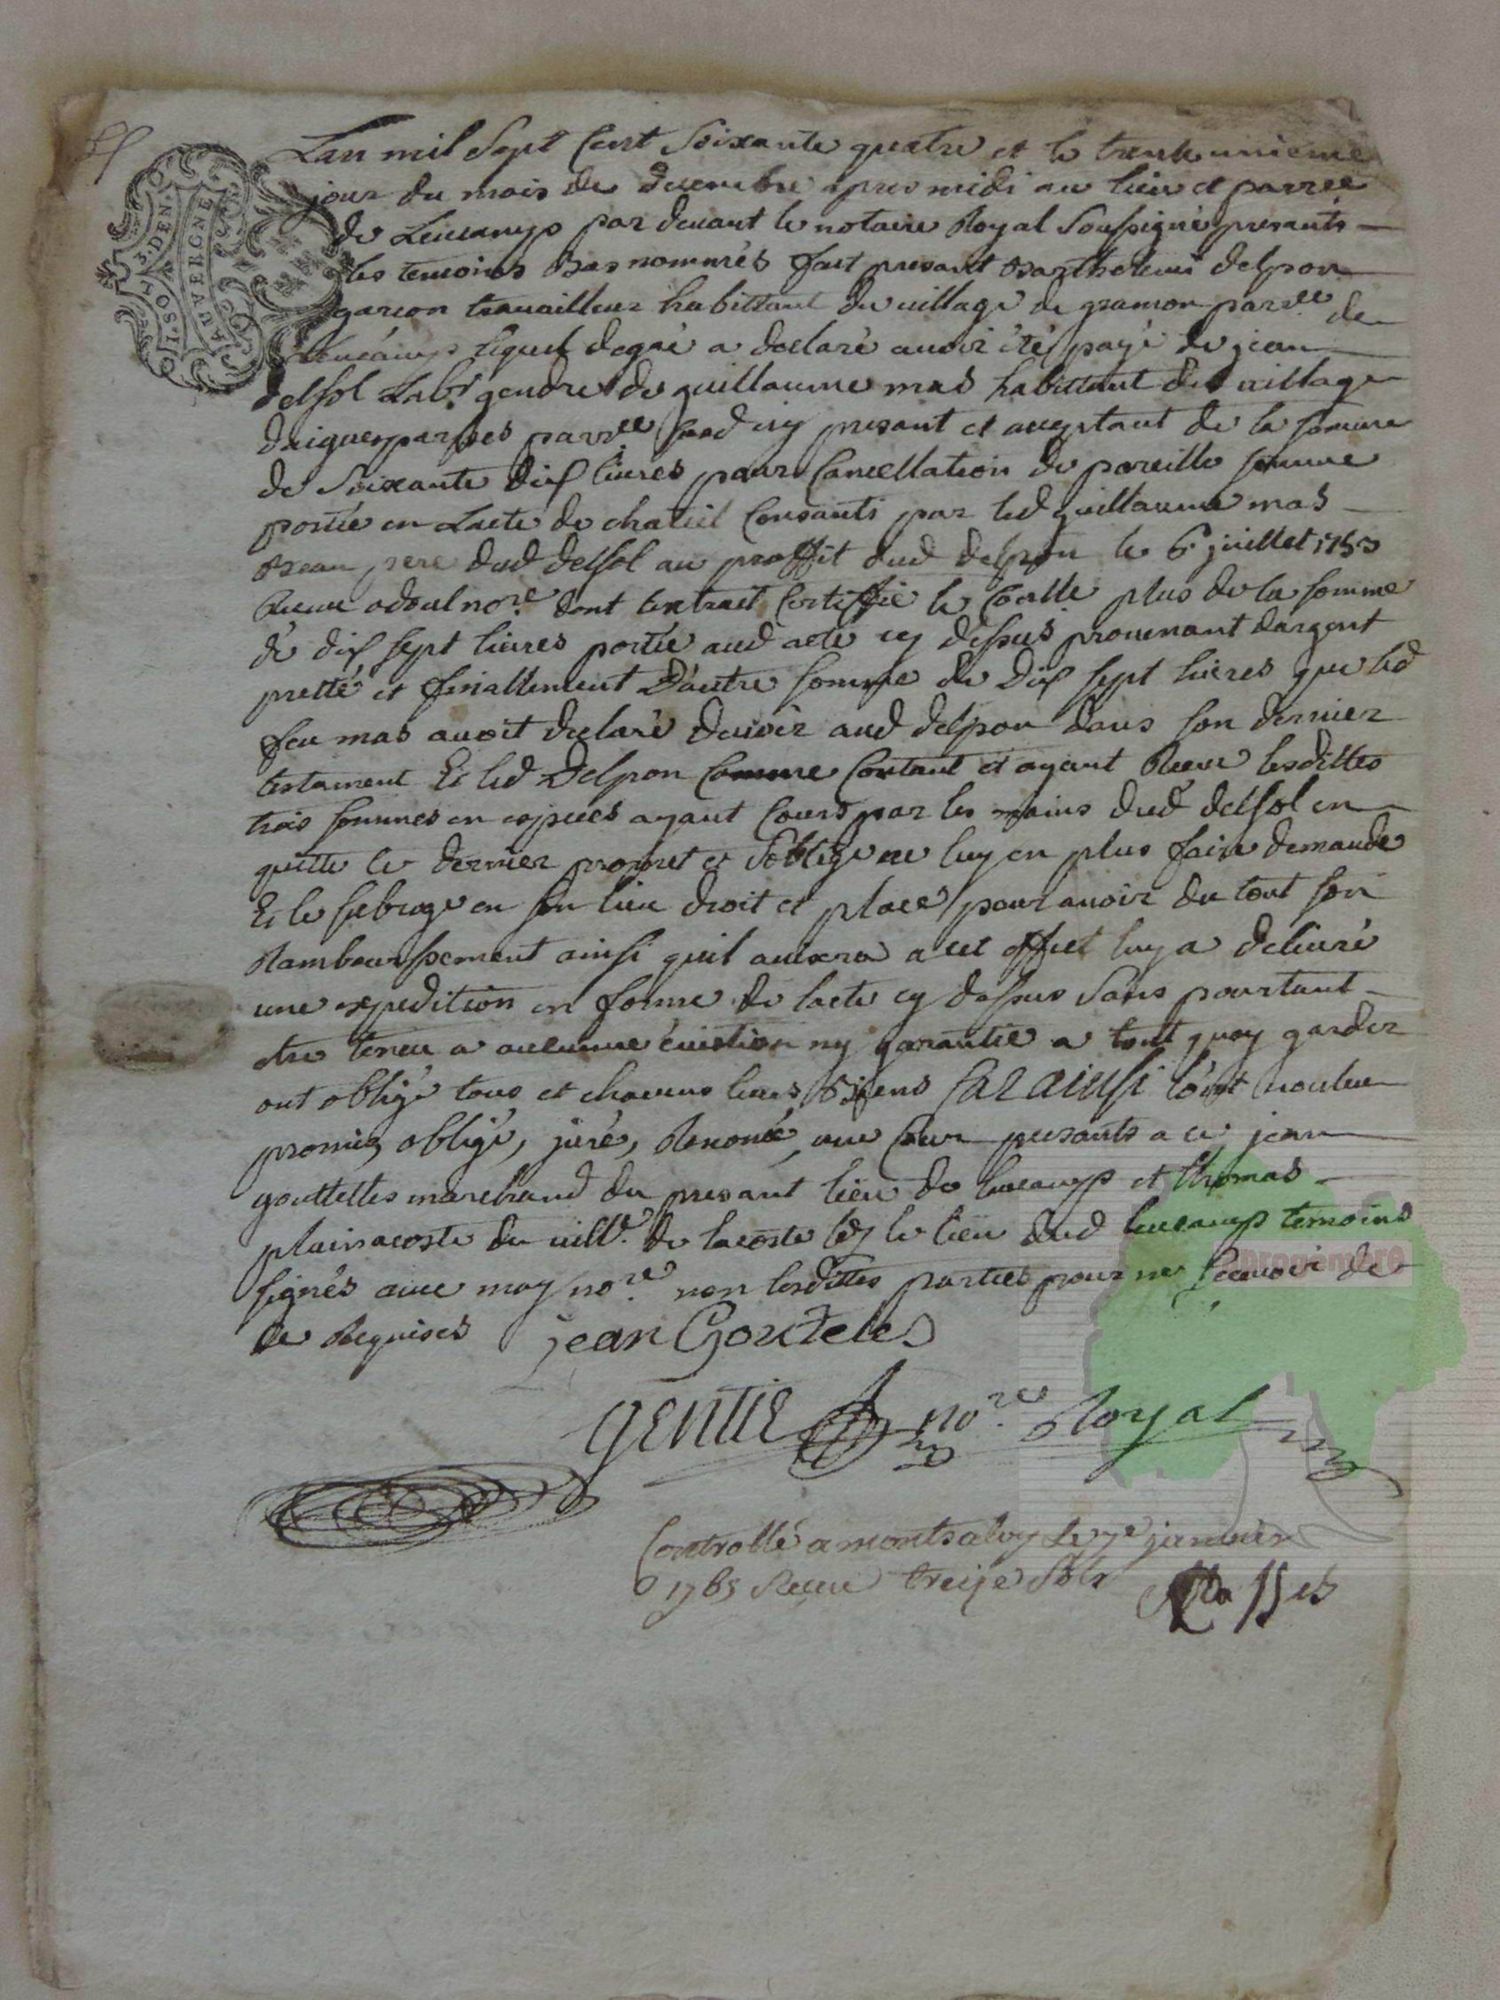 Lan mil Sept Cent Soixante quatre et le trente unieme
jour du mois de decembre apres midi au lieu et parr.ee
de Leucamp par devant le notaire Royal Soussigné presants
les temoins Bas nommés fait presant Barthelemi delpon
garcon travailleur habittant du village de gramon parr.ee de
Leucamp lequel de gré a declaré avoir été payé de jean
delsol Labr gendre de guillaume mas habittant du village
daigueparses parr.ee sus d icy presant et aceptant de la somme
de Soixante dix livres pour Cancellation de pareille somme
portée en Lacte de Consanti par led guillaume mas
Beau pere dud delsol au proffit dud delpon le 6 juillet 1753
Receu no.re dont lextrait Certiffié le Coralle plus de la somme
de dix sept livres portée aud acte cy dessus provenant dargent
pretté et finallement D'autre somme de Dix sept livres que led
feu mas avoit declaré devoir aud delpon dans son dernier
testament Et led Delpon Comme Contant et ayant Receu lesdittes
trois sommes en especes ayant Cours par les mains dud delsol en
quitte le dernier promet et Soblige ne luy en plus faire demande
Et le subroge en son lieu droit et place pour avoir du tout son
Rambourssement ainsi quil avizera a cet effet luy a delivré
une expedition en forme de lacte cy dessus Sans pourtant
etre tenu a aucunne éviction ny garantie a tout quoy garder
ont obligé tous et chacuns leurs Biens Car ainsi lont voulu
promis, obligé, juré, Renoncé, presants a ce jean
gouttelles marchand du presant lieu de leucamp et thomas
plainacoste du vill.e de lacoste lez le lieu dud leucamp temoins
signés avec moy no.re non lesdittes parties pour ne scavoir de
ce Requises jean Gouteles
Gentil no.re Royal
Controllé a montsalvy Le 7e janvier
1765 Receu treize Sols
3. DEN.
I. SOL
AUVERGNE
progenere